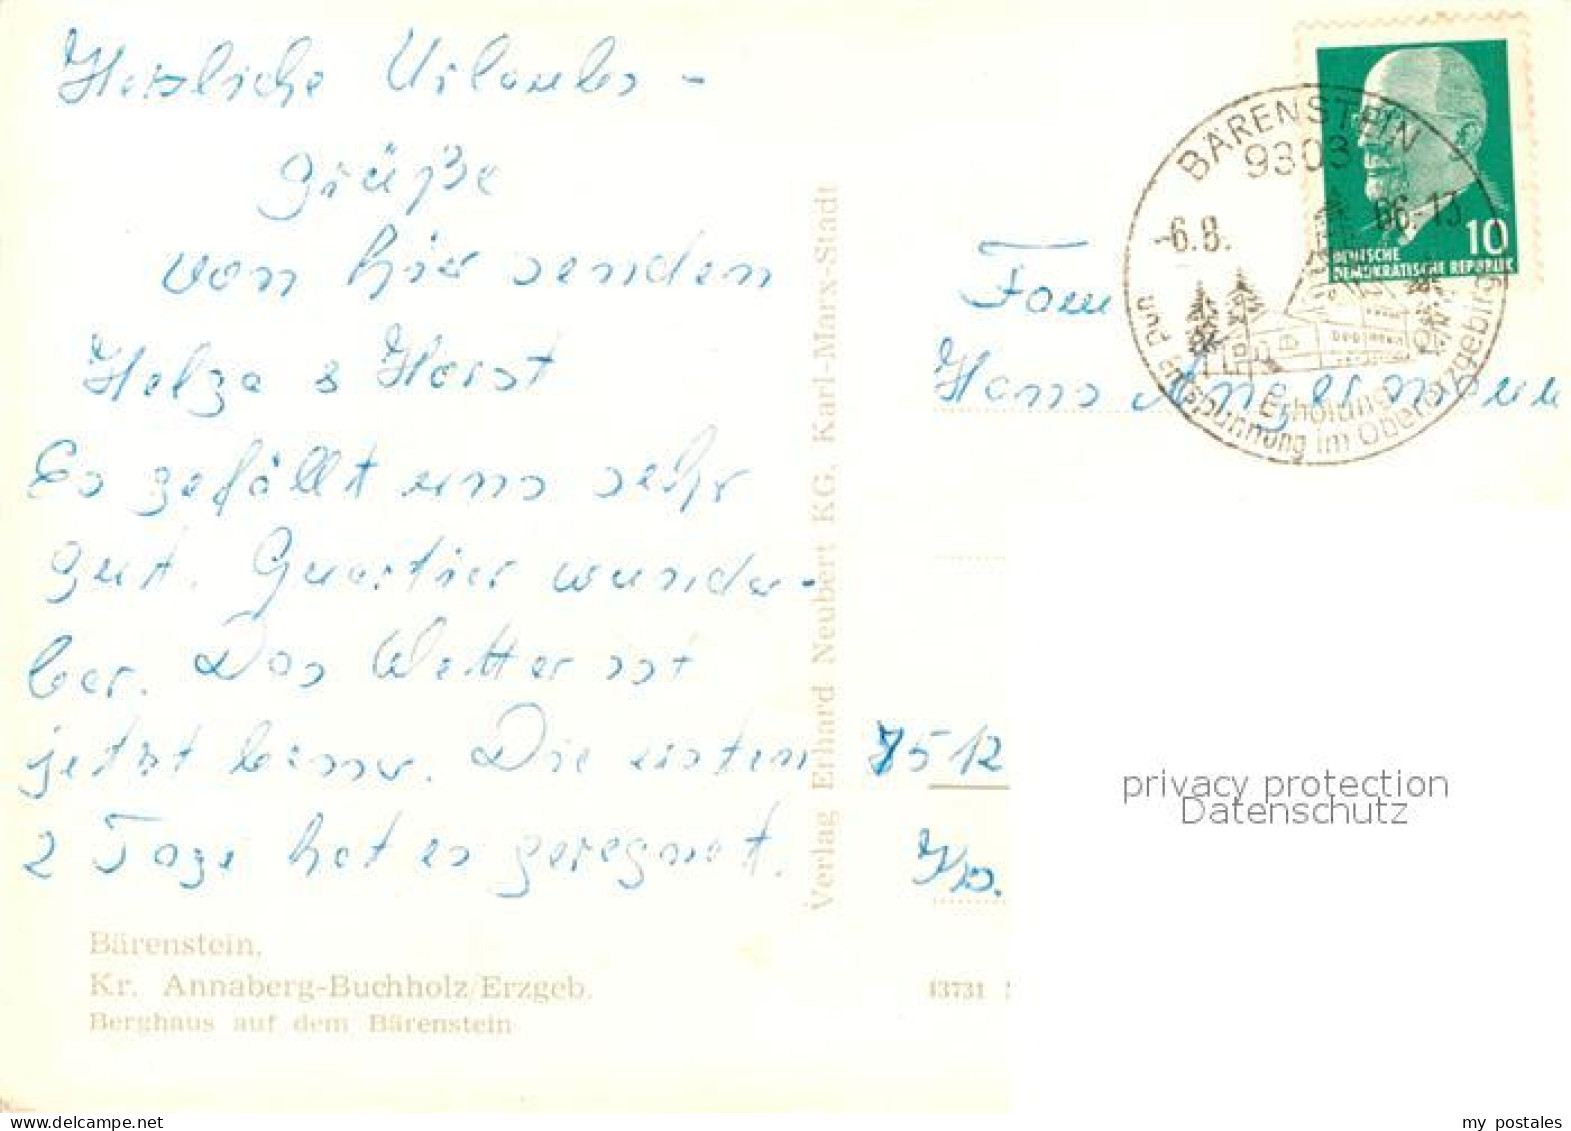 Herzliche Urlaubs-
grüße
von hier senden
Helga & Horst
Es gefällt uns sehr
gut. Quartier wunder-
bar. Das Wetter ist
jetzt besser. Die ersten
2 Tage hat es geregnet.
Bärenstein,
Kr. Annaberg-Buchholz/Erzgeb.
Berghaus auf dem Bärenstein
Verlag Erhard Neubert KG, Karl-Marx-Stadt
BÄRENSTEIN
9303
-6.8. 66.-13
Erholung
Entspannung im Obererzgebirge
10
DEUTSCHE
DEMOKRATISCHE REPUBLIK
Fam
Hans Angermann
7512
Krs.
43731
privacy protection
Datenschutz
www.delcampe.net
my_postales